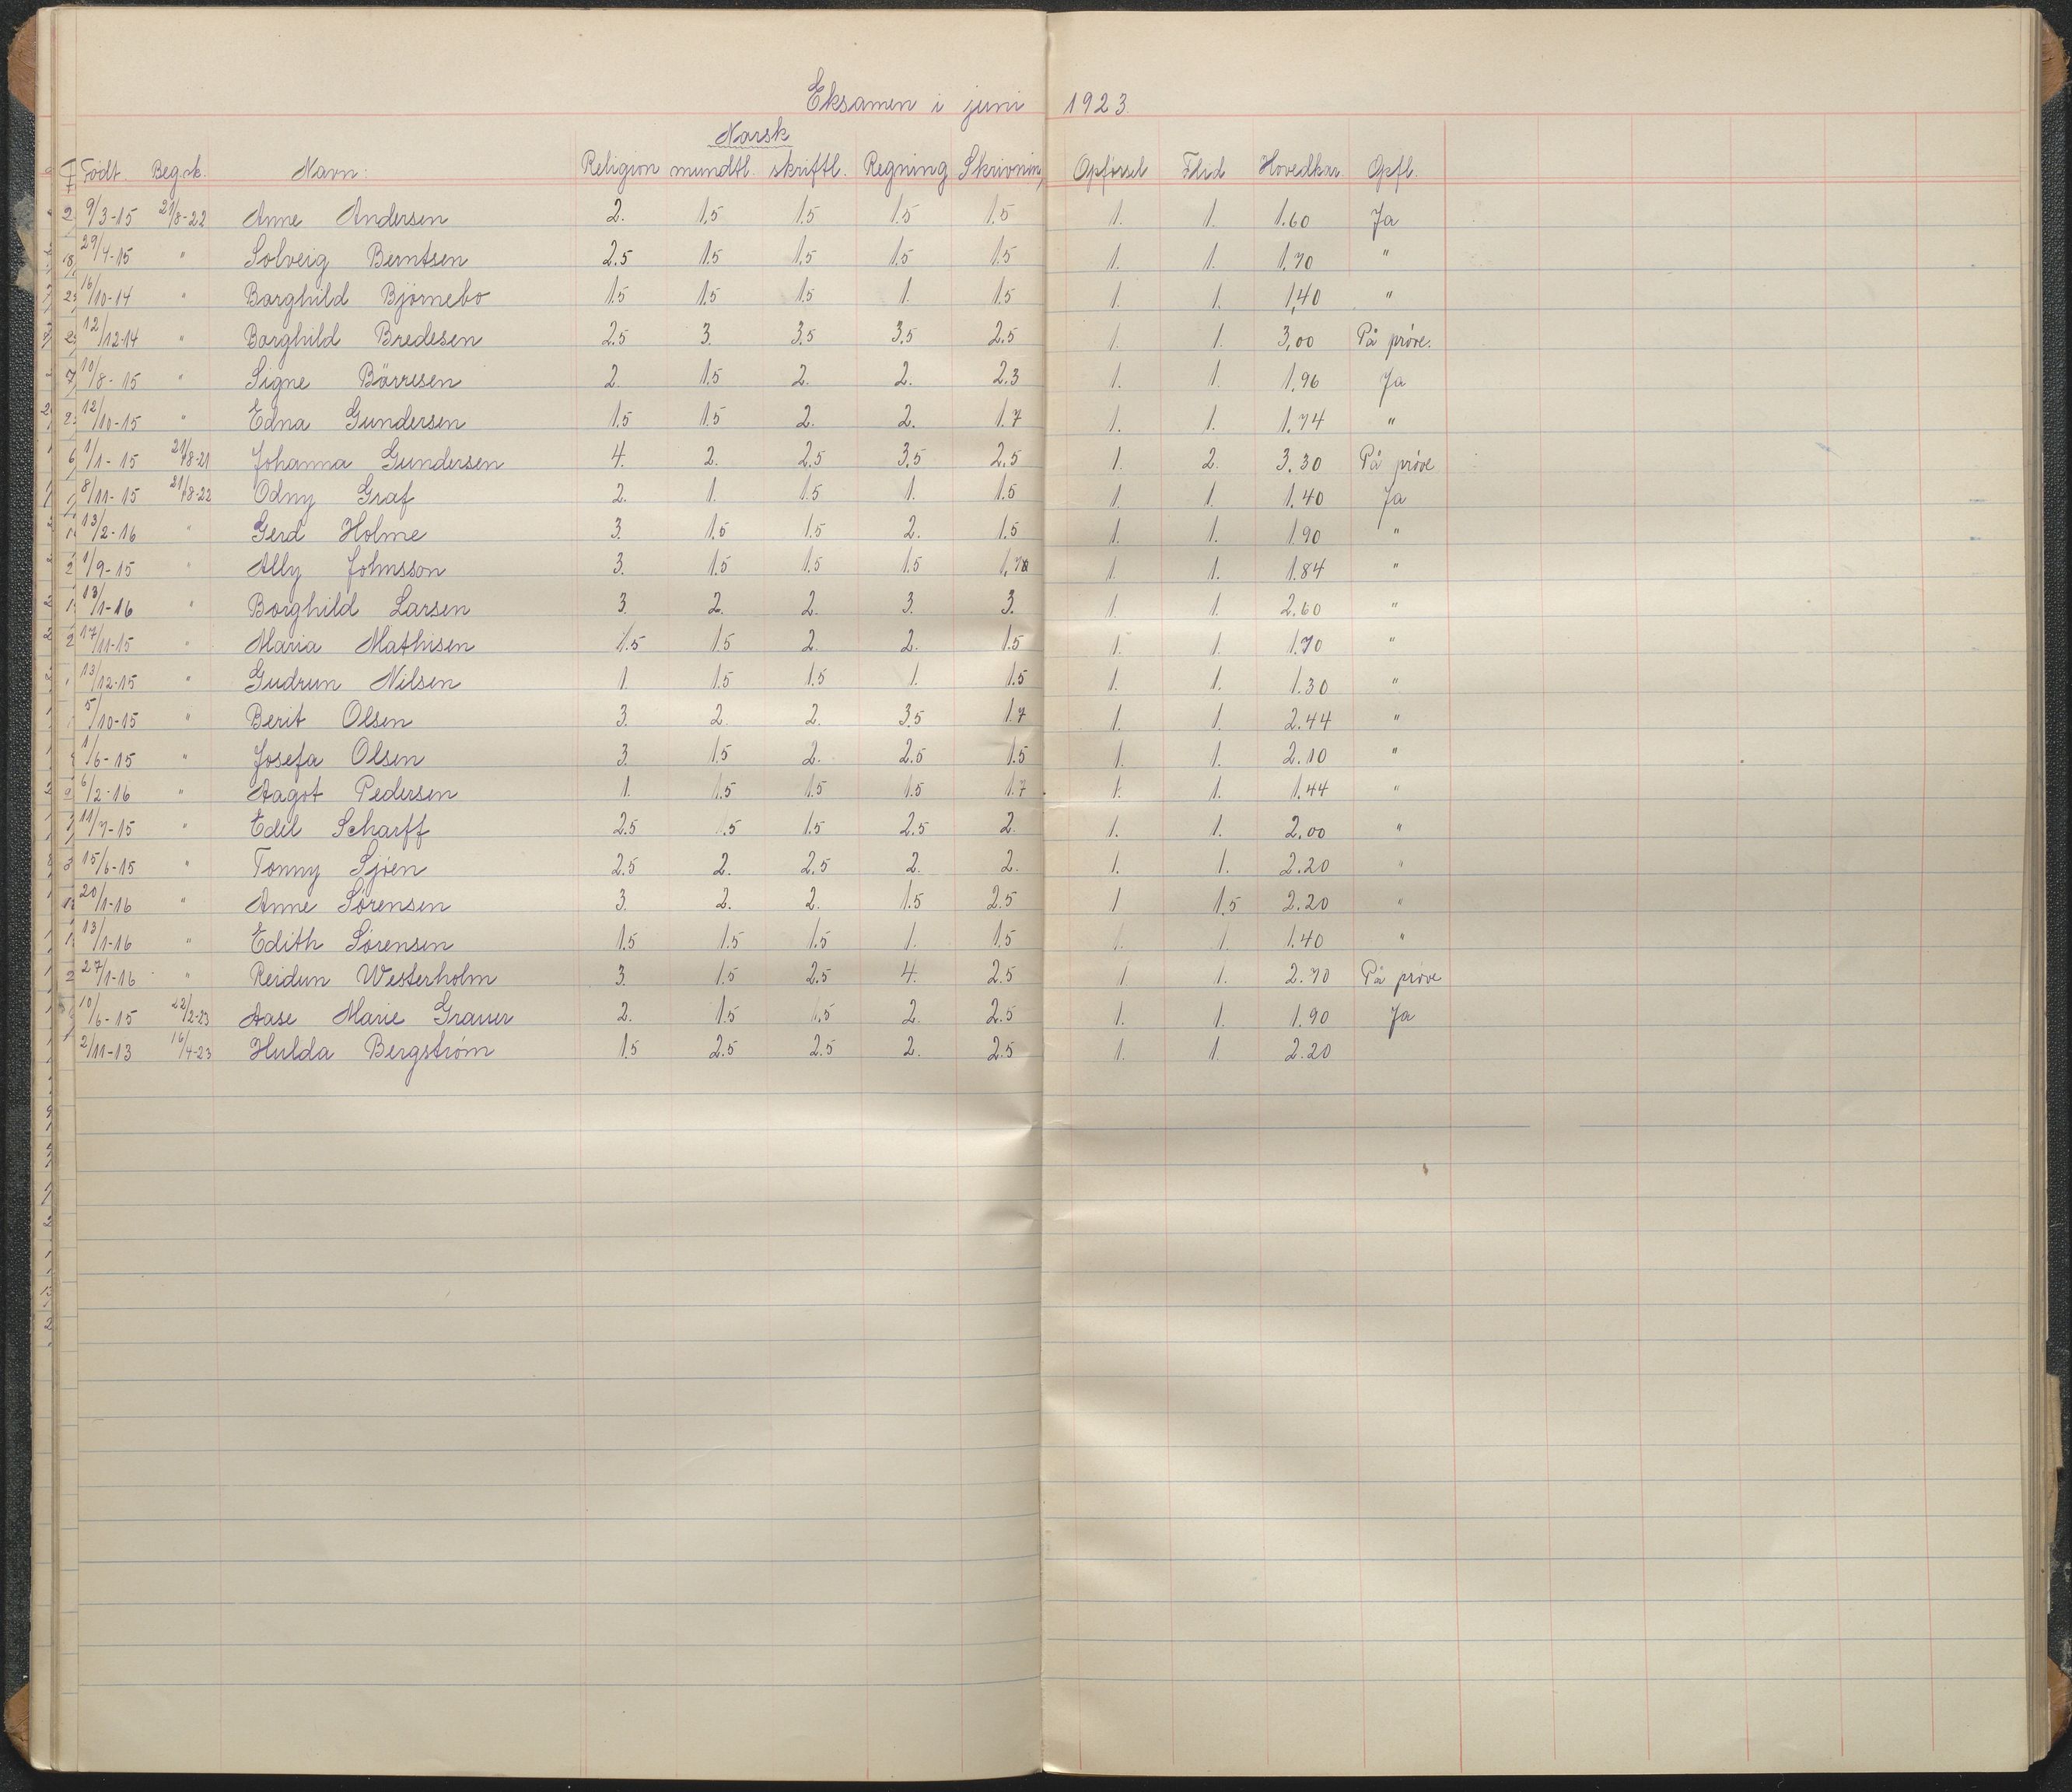 Eksamen i juni 1923.
Norsk
Födt. Beg.sk. Navn: Religion mundtl. skriftl. Regning Skrivning Opförsel Flid Hovedkar. Opfl.
9/3-15 21/8-22 Anne Andersen 2. 1.5 1.5 1.5 1.5 1. 1. 1.60 Ja
29/4-15 " Solveig Berntsen 2.5 1.5 1.5 1.5 1.5 1. 1. 1.70 "
16/10-14 " Borghild Björnebo 1.5 1.5 1.5 1. 1.5 1. 1. 1,40 "
12/12-14 " Borghild Bredesen 2.5 3. 3.5 3.5 2.5 1. 1. 3,00 På pröve.
10/8-15 " Signe Börresen 2. 1.5 2. 2. 2.3 1. 1. 1.96 Ja
12/10-15 " Edna Gundersen 1.5 1.5 2. 2. 1.7 1. 1. 1.74 "
1/1-15 21/8-21 Johanna Gundersen 4. 2. 2.5 3.5 2.5 1. 2. 3.30 På pröve
8/11-15 21/8-22 Odny Graf 2. 1. 1.5 1. 1.5 1. 1. 1.40 Ja
13/2-16 " Gerd Holme 3. 1.5 1.5 2. 1.5 1. 1. 1.90 "
1/9-15 " Ally Johnsson 3. 1.5 1.5 1.5 1,7 1. 1. 1.84 "
13/1-16 " Borghild Larsen 3. 2. 2. 3. 3. 1. 1. 2.60 "
17/11-15 " Maria Mathisen 1.5 1.5 2. 2. 1.5 1. 1. 1.70 "
13/12-15 " Gudrun Nilsen 1. 1.5 1.5 1. 1.5 1. 1. 1.30 "
5/10-15 " Berit Olsen 3. 2. 2. 3.5 1.7 1. 1. 2.44 "
1/6-15 " Josefa Olsen 3. 1.5 2. 2.5 1.5 1. 1. 2.10 "
6/2-16 " Aagot Pedersen 1. 1.5 1.5 1.5 1.7 1. 1. 1.44 "
11/7-15 " Edel Scharff 2.5 1.5 1.5 2.5 2. 1. 1. 2.00 "
15/6-15 " Tonny Sjöen 2.5 2. 2.5 2. 2. 1. 1. 2.20 "
20/1-16 " Anne Sörensen 3. 2. 2. 1.5 2.5 1 1.5 2.20 "
13/1-16 " Edith Sörensen 1.5 1.5 1.5 1. 1.5 1. 1. 1.40 "
27/1-16 " Reidun Westerholm 3. 1.5 2.5 4. 2.5 1 1. 2.70 På pröve
10/6-15 22/2-23 Aase Marie Grauer 2. 1.5 1.5 2. 2.5 1. 1. 1.90 Ja
2/11-13 16/4-23 Hulda Bergström 1.5 2.5 2.5 2. 2.5 1. 1. 2.20